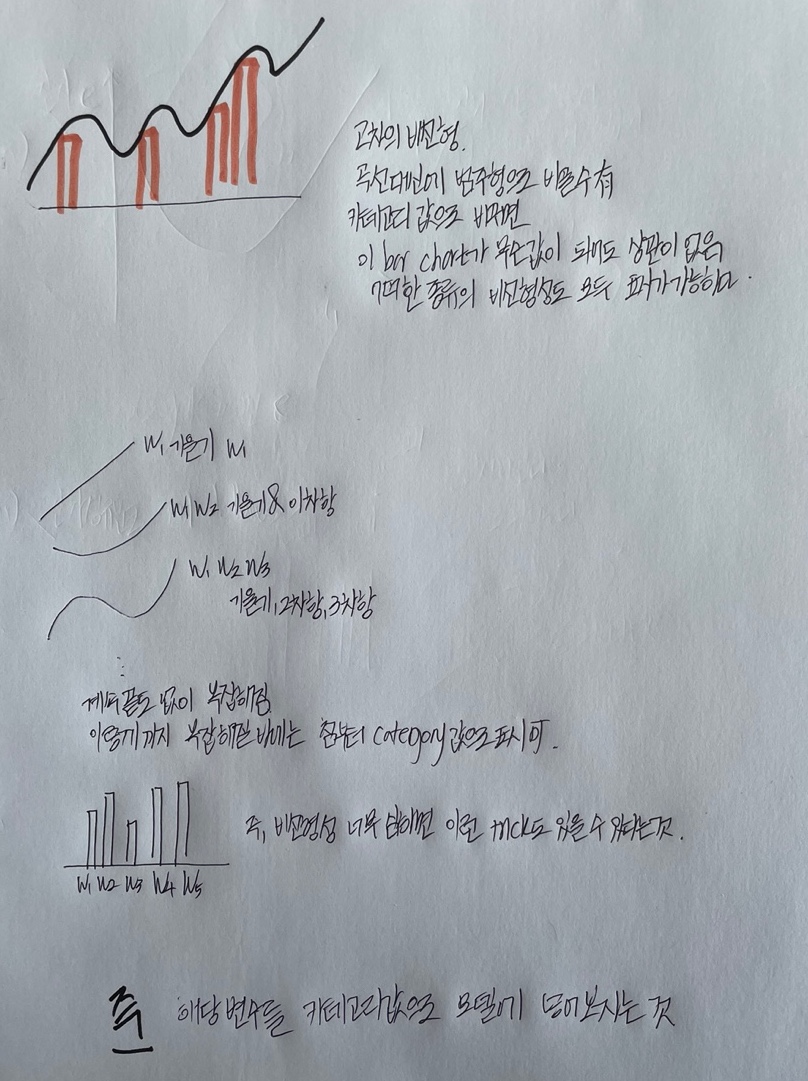 고차의 비선형.
곡선대신에 범주형으로 바꿀수 有
카테고리 값으로 바꾸면
이 bar chart가 무슨값이 되어도 상관이 없음
어떠한 종류의 비선형성도 모두 표기가 가능하다.
W₁ 기울기 W₁
W₁ W₂ 기울기 & 이차항
W₁ W₂ W₃
기울기, 2차항, 3차항
⋮
계속 끝도 없이 복잡해짐
이렇게까지 복잡해질 바에는 첨부터 category 값으로 표시 可.
즉, 비선형성 너무 심하면 이런 trick도 있을 수 있다는 것.
W₁ W₂ W₃ W₄ W₅
즉 해당 변수를 카테고리값으로 모델에 넣어보시는 것